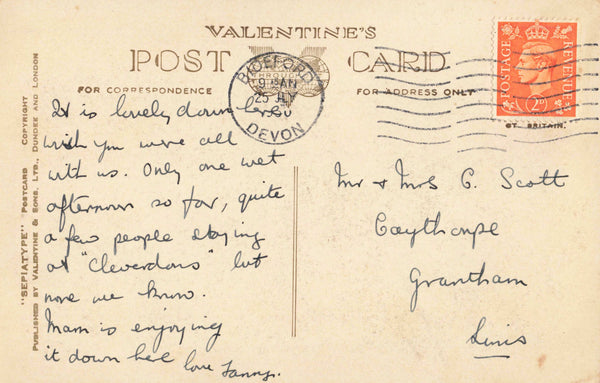 VALENTINE'S
POST CARD
FOR CORRESPONDENCE
FOR ADDRESS ONLY
BIDEFORD
9 AM
25 JLY
DEVON
POSTAGE
REVENUE
2D
GT. BRITAIN.
"SEPIATYPE" POSTCARD COPYRIGHT
PUBLISHED BY VALENTINE & SONS, LTD., DUNDEE AND LONDON
It is lovely down here
wish you were all
with us. Only one wet
afternoon so far, quite
a few people staying
at "Cleverdons" but
none we know.
Mam is enjoying
it down here love
Mr & Mrs C. Scott
Caythorpe
Grantham
Lincs